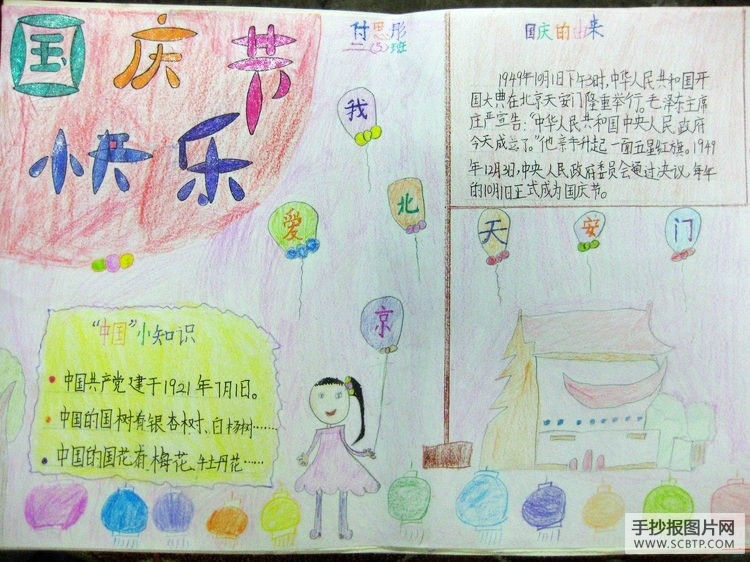 国庆节
快乐
付思彤
二(5)班
国庆的由来
1949年10月1日下午3时,中华人民共和国开
国大典在北京天安门隆重举行。毛泽东主席
庄严宣告:“中华人民共和国中央人民政府
今天成立了。”他亲手升起一面五星红旗。1949
年12月3日,中央人民政府委员会通过决议,每年
的10月1日正式成为国庆节。
我
爱
北
京
天
安
门
“中国”小知识
中国共产党建于1921年7月1日。
中国的国树有银杏树、白杨树……
中国的国花有,梅花、牡丹花……
手抄报图片网
WWW.SCBTP.COM